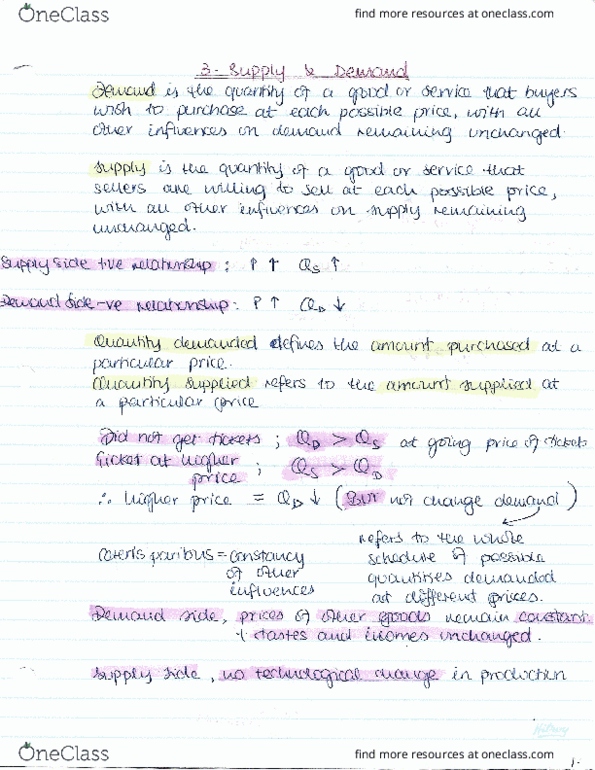 OneClass
find more resources at oneclass.com
3- Supply & Demand
Demand is the quantity of a good or service that buyers
wish to purchase at each possible price, with all
other influences on demand remaining unchanged.
Supply is the quantity of a good or service that
sellers are willing to sell at each possible price,
with all other influences on supply remaining
unchanged.
Supply side +ive relationship : P ↑ Qs ↑
Demand Side -ve relationship: P ↑ QD ↓
Quantity demanded defines the amount purchased at a
particular price.
Quantity Supplied refers to the amount supplied at
a particular price
Did not get tickets ; QD > Qs at going price of tickets
Ticket at higher
price ; Qs > QD
∴ higher price = QD ↓ (But not change demand)
refers to the whole
schedule of possible
quantities demanded
at different prices.
Ceteris paribus = constancy
of other
influences
Demand side, prices of other goods remain constant
+ tastes and incomes unchanged.
Supply side, no technological change in production
OneClass
find more resources at oneclass.com
1-